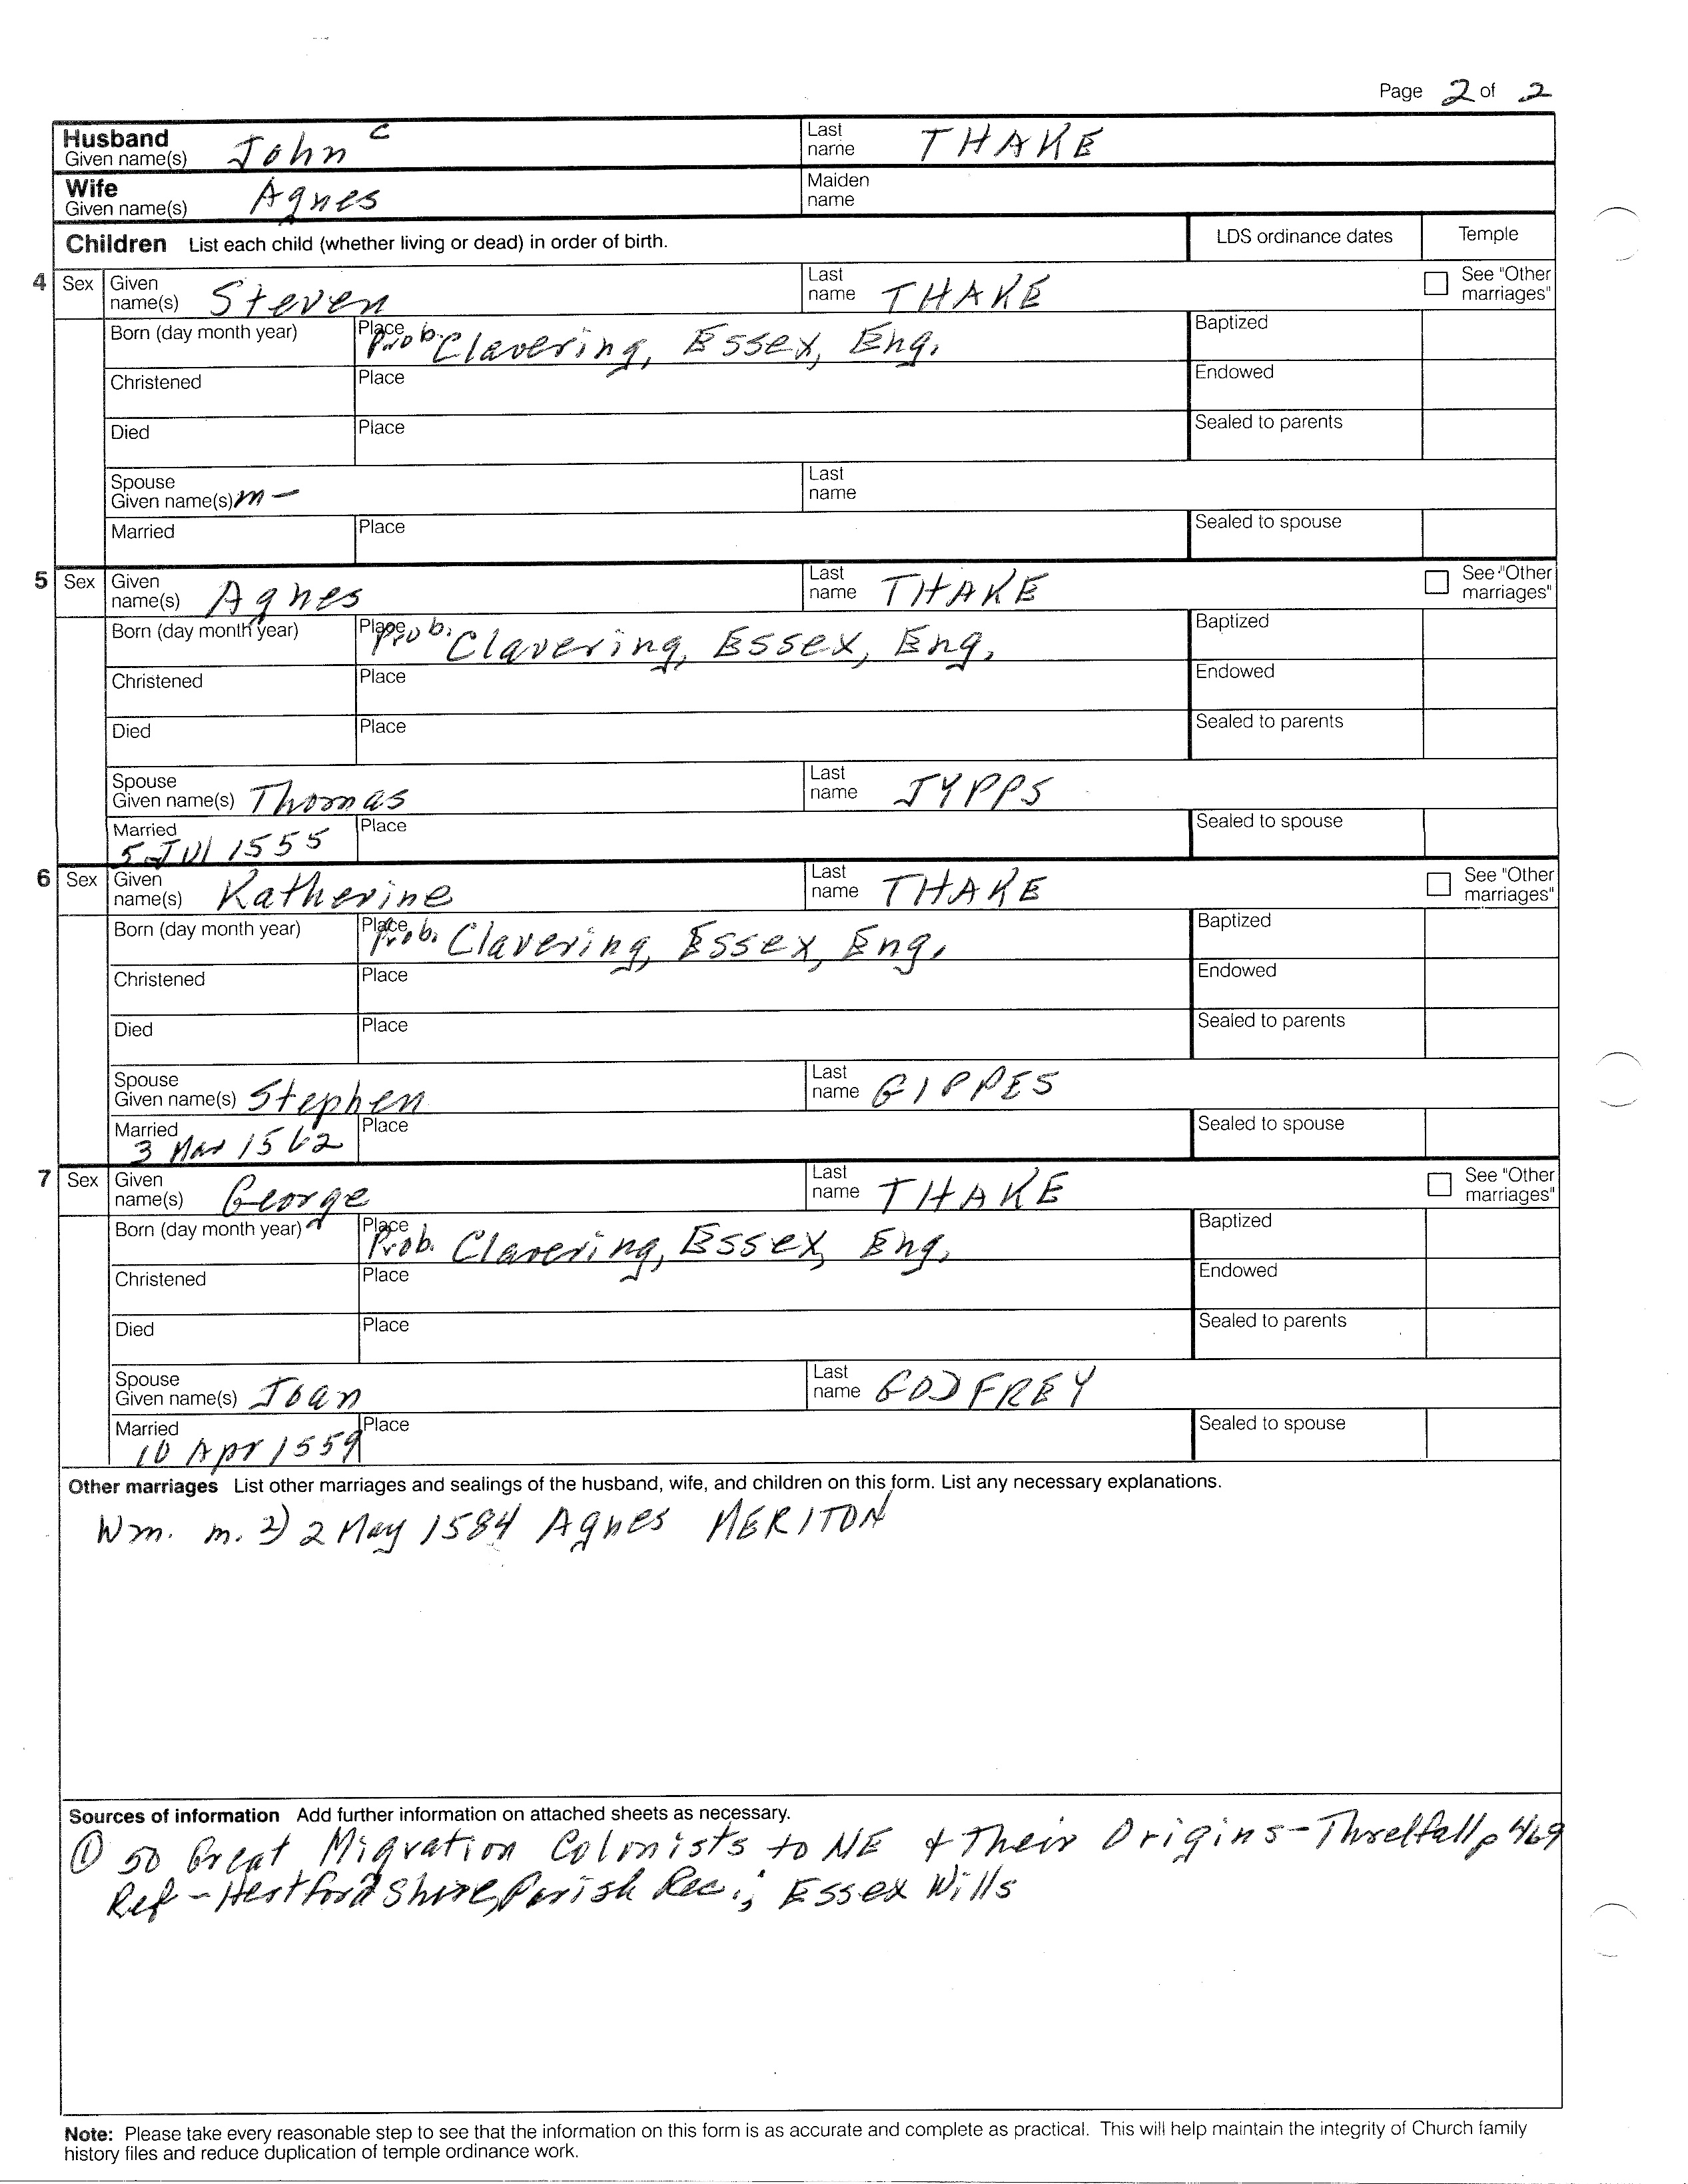 Page 2 of 2
Husband Given name(s) John C Last name THAKE
Wife Given name(s) Agnes Maiden name
Children List each child (whether living or dead) in order of birth. LDS ordinance dates Temple
4 Sex Given name(s) Steven Last name THAKE See "Other marriages"
Born (day month year) Place Prob. Clavering, Essex, Eng. Baptized
Christened Place Endowed
Died Place Sealed to parents
Spouse Given name(s) m – Last name
Married Place Sealed to spouse
5 Sex Given name(s) Agnes Last name THAKE See "Other marriages"
Born (day month year) Place Prob. Clavering, Essex, Eng. Baptized
Christened Place Endowed
Died Place Sealed to parents
Spouse Given name(s) Thomas Last name JYPPS
Married 5 Jul 1555 Place Sealed to spouse
6 Sex Given name(s) Katherine Last name THAKE See "Other marriages"
Born (day month year) Place Prob. Clavering, Essex, Eng. Baptized
Christened Place Endowed
Died Place Sealed to parents
Spouse Given name(s) Stephen Last name GIPPES
Married 3 Mar 1562 Place Sealed to spouse
7 Sex Given name(s) George Last name THAKE See "Other marriages"
Born (day month year) Place Prob. Clavering, Essex, Eng. Baptized
Christened Place Endowed
Died Place Sealed to parents
Spouse Given name(s) Joan Last name GODFREY
Married 10 Apr 1559 Place Sealed to spouse
Other marriages List other marriages and sealings of the husband, wife, and children on this form. List any necessary explanations.
Wm. m. 2) 2 May 1584 Agnes MERITON
Sources of information Add further information on attached sheets as necessary.
① 50 Great Migration Colonists to NE & Their Origins – Threlfall p 469
Ref – Hertfordshire, Parish Rec.; Essex Wills
Note: Please take every reasonable step to see that the information on this form is as accurate and complete as practical. This will help maintain the integrity of Church family
history files and reduce duplication of temple ordinance work.